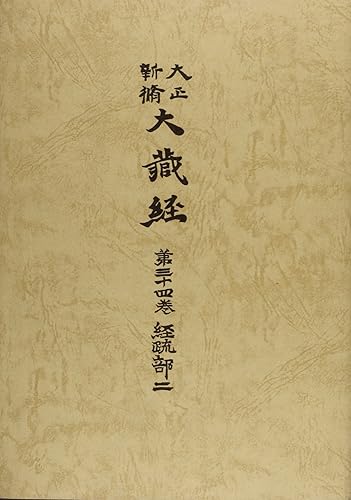 大正
新脩
大藏経
第三十四巻 経疏部二